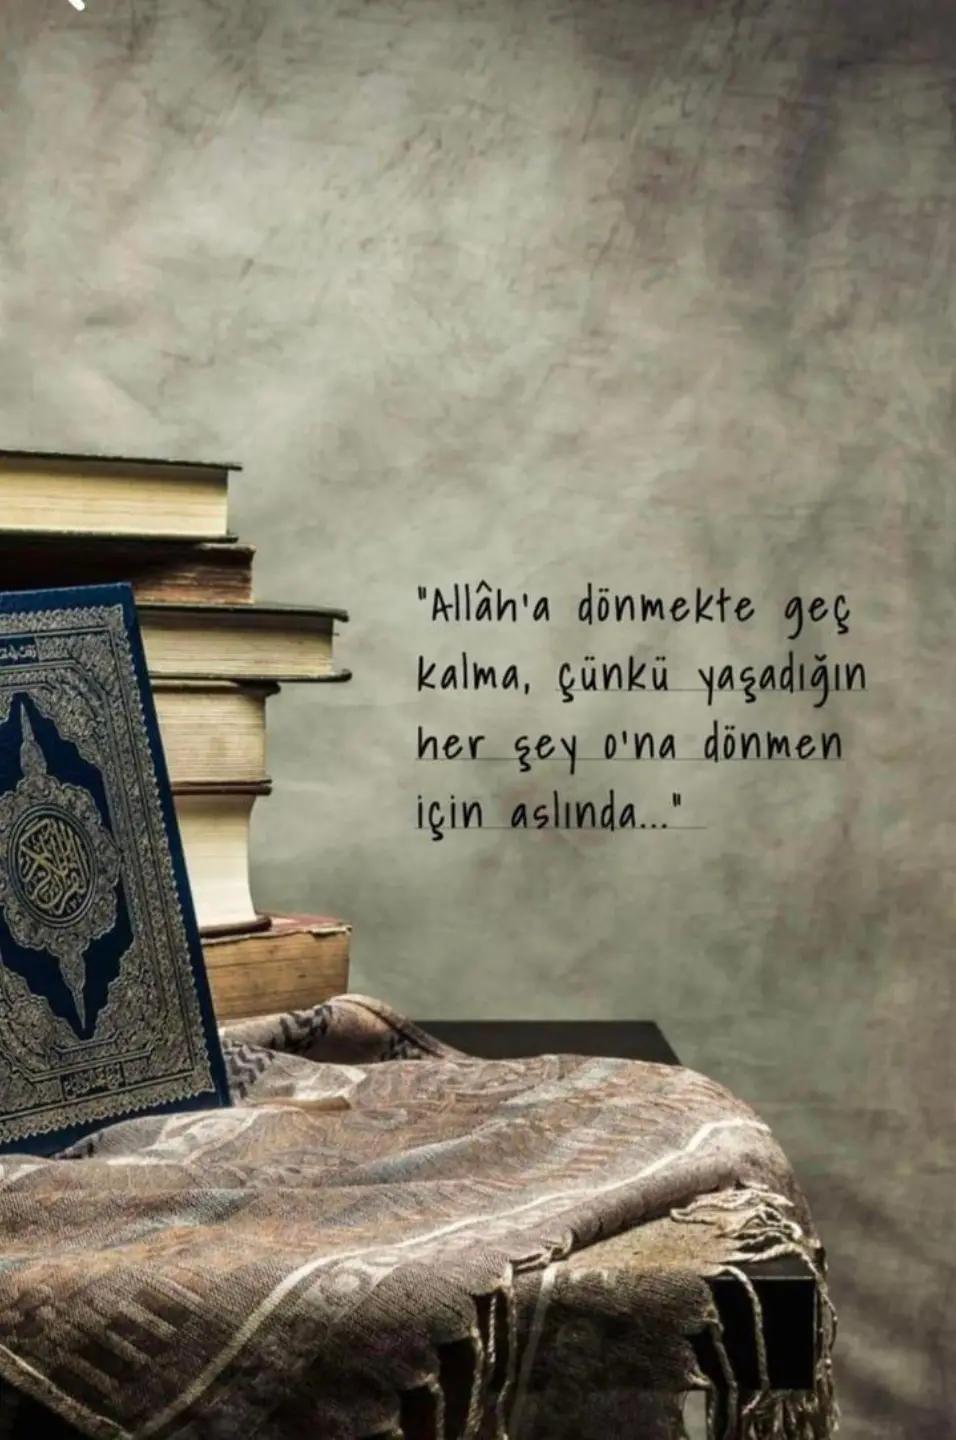 "Allâh'a dönmekte geç
kalma, çünkü yaşadığın
her şey o'na dönmen
için aslında..."